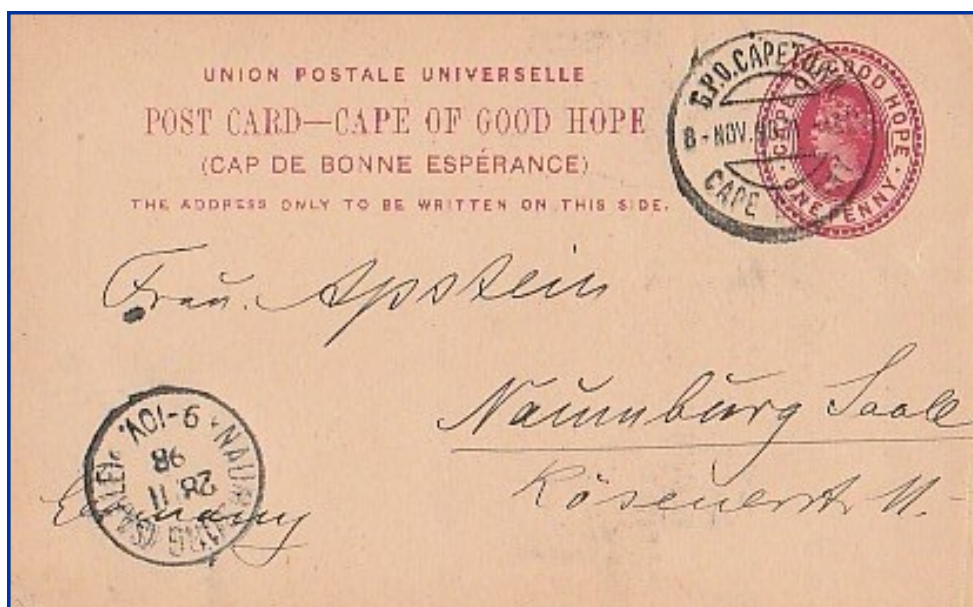 UNION POSTALE UNIVERSELLE
POST CARD—CAPE OF GOOD HOPE
(CAP DE BONNE ESPÉRANCE)
THE ADDRESS ONLY TO BE WRITTEN ON THIS SIDE.
G.P.O. CAPETOWN
8 - NOV. 98
CAPE
CAPE OF GOOD HOPE
ONE PENNY
Frau. Apstein
Naumburg Saale
Kösenerstr. 11.
Germany
NAUMBURG (SAALE)
28 11
98
9-10V.